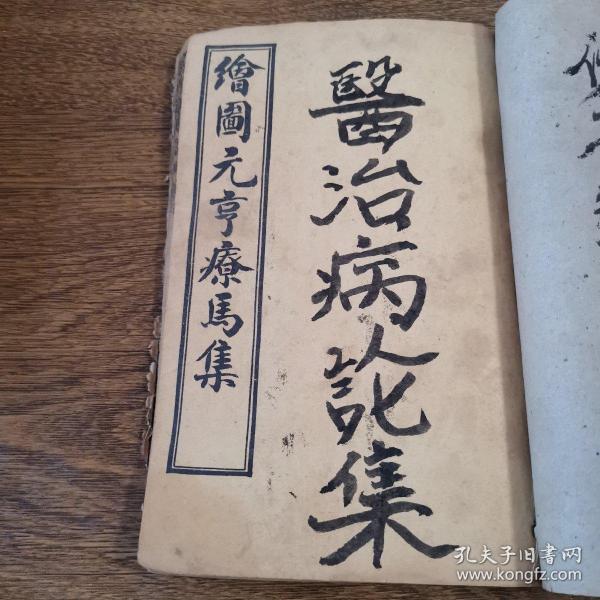 醫治病
集
繪圖元亨療馬集
孔夫子旧书网
www.kongfz.com